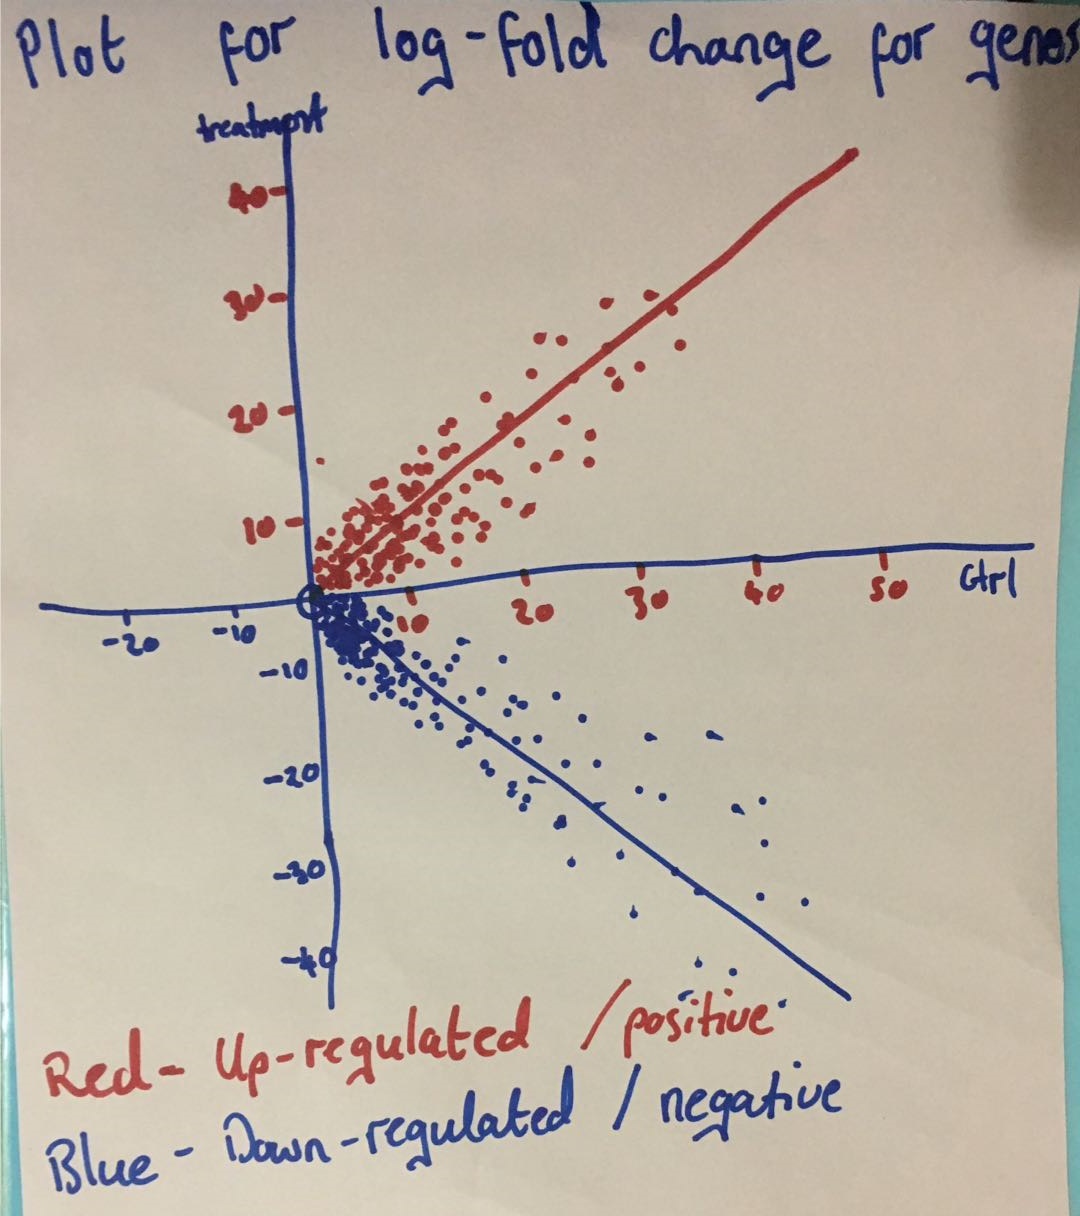 Plot for log-fold change for genes
treatment
40
30
20
10
-20 -10 10 20 30 40 50 Ctrl
-10
-20
-30
-40
Red- Up-regulated / positive
Blue - Down-regulated / negative